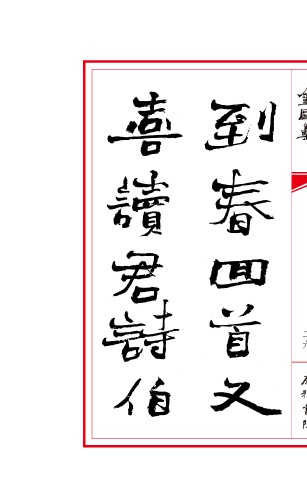 到春回首又
喜讀君詩伯